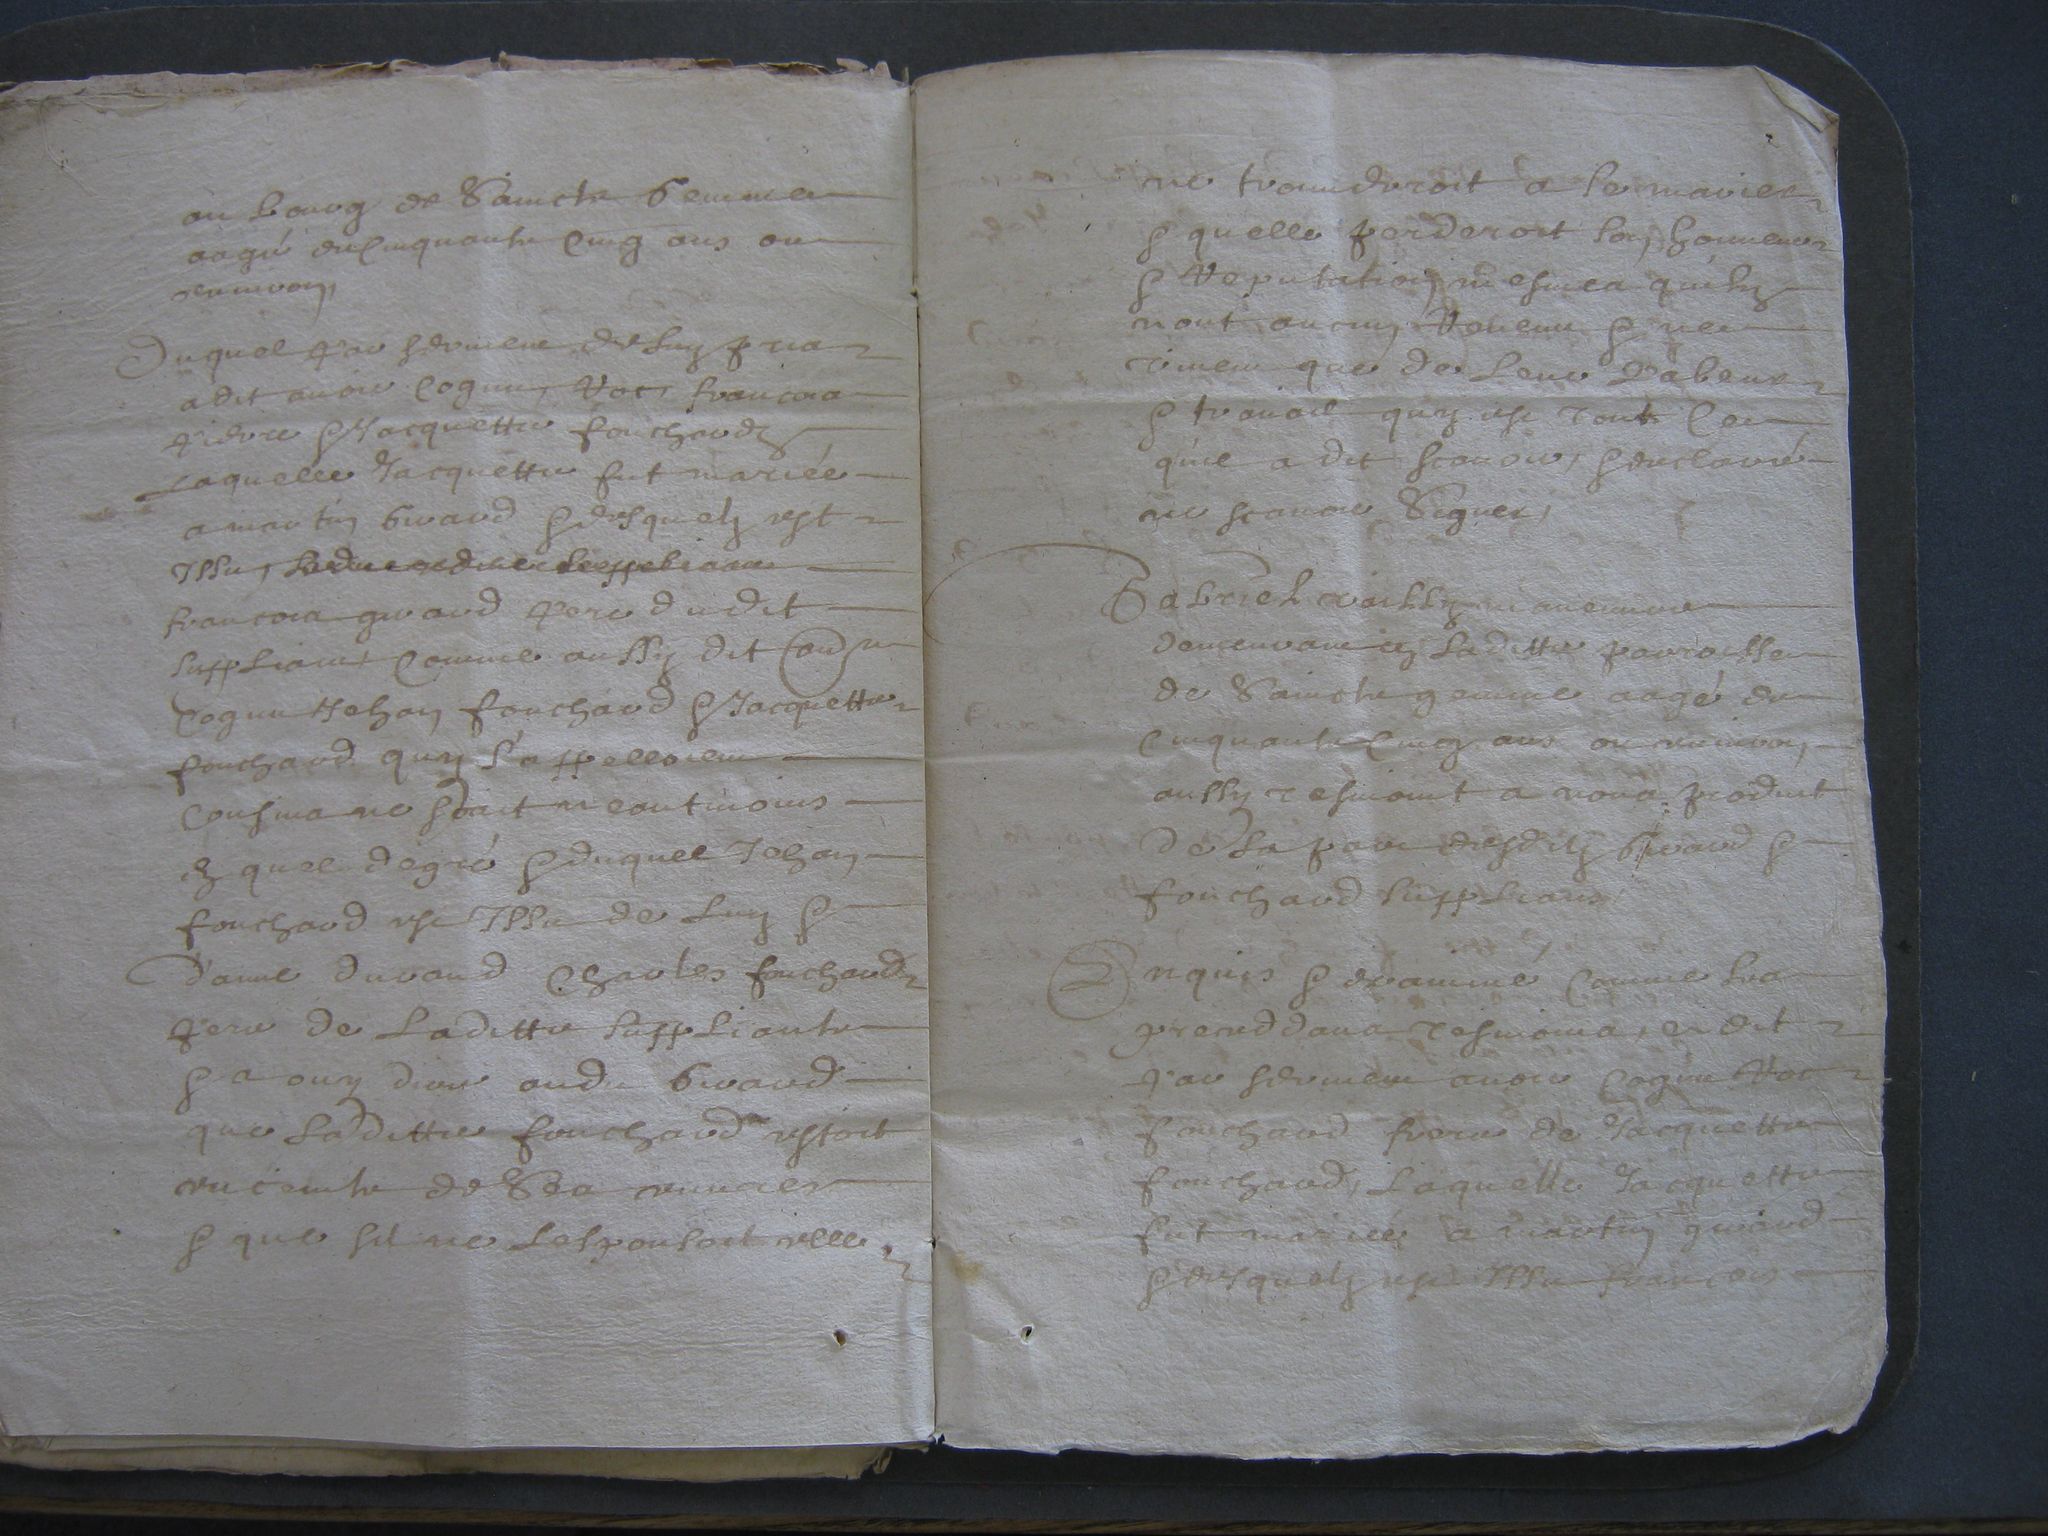 au bourg de Saincte Gemme
aagé de Cinquante Cinq ans ou
environ
Duquel par serment de luy pris
a dit avoir Cognu Roc, francois
pierre & Jacquette fouchard
Laquelle Jacquette fut mariée
a martin Girard & desquelz est
Issu
francois girard pere dudit
suppliant Comme aussy dit avoir
Cognu Jehan fouchard & Jacquette
fouchard quy s'appelloient
Cousins ne scait neantmoins
en quel degré & duquel Jehan
fouchard est Issu de luy &
d'anne durand Charles fouchard
pere de Laditte suppliante
& a ouy dire audit Girard
que Laditte fouchard estoit
enceinte de Ses œuvres
& que sil ne L'espousoit elle
ne trouveroit a se marier
& quelle perderoit son honneur
& Reputation mesmes quilz
nont aucun Revenu & ne
vivent que de Leur Labeur
& travail quy est tout Ce
quil a dit scavoir & declaré
ne scavoir Signer
Gabriel manœuvre
demeurant en Laditte parroisse
de Saincte gemme aagé de
Cinquante Cinq ans ou environ
aussy tesmoint a nous produit
De La part desditz Girard &
fouchard supplians
Enquis & examiné Comme les
preceddans tesmoins, a dit
par serment avoir Cognu Roc
fouchard frere de Jacquette
fouchard, Laquelle Jacquette
fut mariée a martin girard
& desquelz est Issu francois